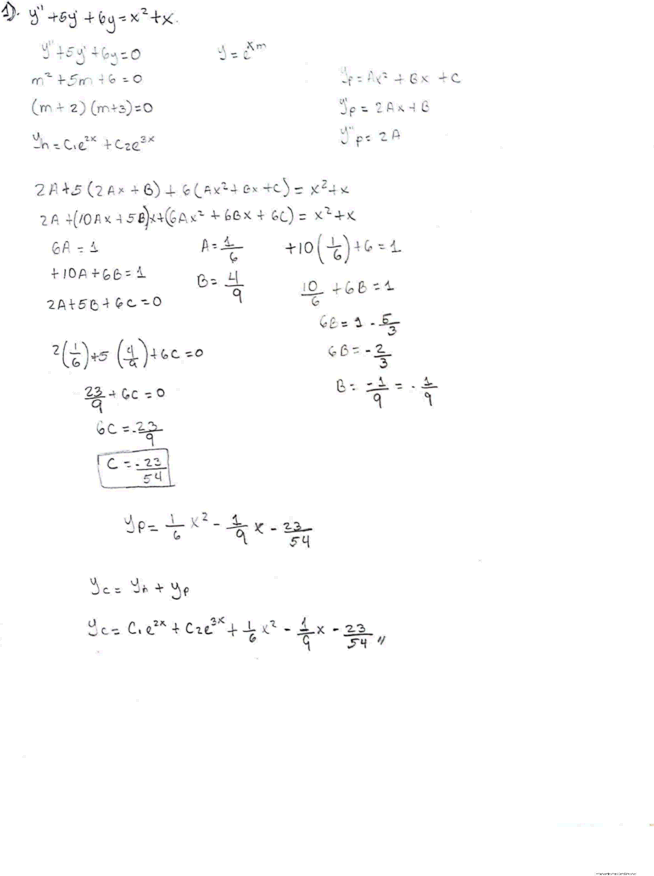 1). y'' + 5y' + 6y = x² + x.
y'' + 5y' + 6y = 0
y = e^xm
m² + 5m + 6 = 0
yp = Ax² + Bx + C
(m + 2) (m + 3) = 0
y'p = 2Ax + B
yh = C₁e^2x + C₂e^3x
y''p = 2A
2A + 5 (2Ax + B) + 6 (Ax² + Bx + C) = x² + x
2A + (10Ax + 5B)x + (6Ax² + 6Bx + 6C) = x² + x
6A = 1
A = 1/6
+10 (1/6) + 6 = 1
+10A + 6B = 1
B = 4/9
10/6 + 6B = 1
2A + 5B + 6C = 0
6B = 1 - 5/3
2 (1/6) + 5 (4/9) + 6C = 0
6B = - 2/3
23/9 + 6C = 0
B = -1/9 = - 1/9
6C = - 23/9
C = - 23/54
yp = 1/6 x² - 1/9 x - 23/54
yc = yh + yp
yc = C₁e^2x + C₂e^3x + 1/6 x² - 1/9 x - 23/54 //